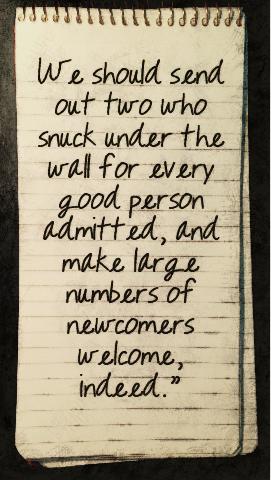 We should send
out two who
snuck under the
wall for every
good person
admitted, and
make large
numbers of
newcomers
welcome,
indeed.”